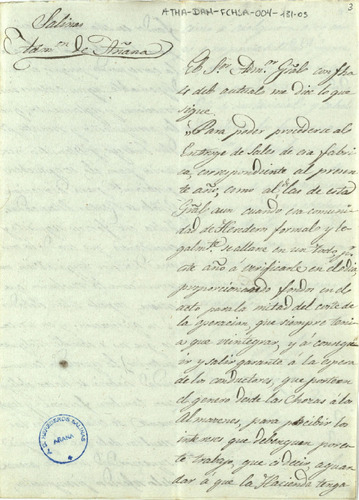 ATHA-DAM-FCHSA-004-131-03
3
Salinas
Admon de Añana
El Sor Admor Gral con fha
14 del actual me dice lo que
sigue
"Para poder procederse al
Entroge de Sales de esa fabri-
ca, correspondiente al presen-
te año, como al las de esta
Gral aun cuando esa comuni-
dad de Herederos formal y le-
galmte se allane en un todo
este año á verificarlo en el dia
proporcionando fondos en el
acto para la mitad del coste de
la operacion, que siempre tenia
a que reintegrar, y á conseguir
y salir garante á la espera
de los conductores, que porteen
el genero desde las Chozas á los
Almacenes, para percibir los
intereses que debenguen por es-
te trabajo, que es decir, aguar-
dar á que la Hacienda tenga
HEREDEROS SALINAS
AÑANA